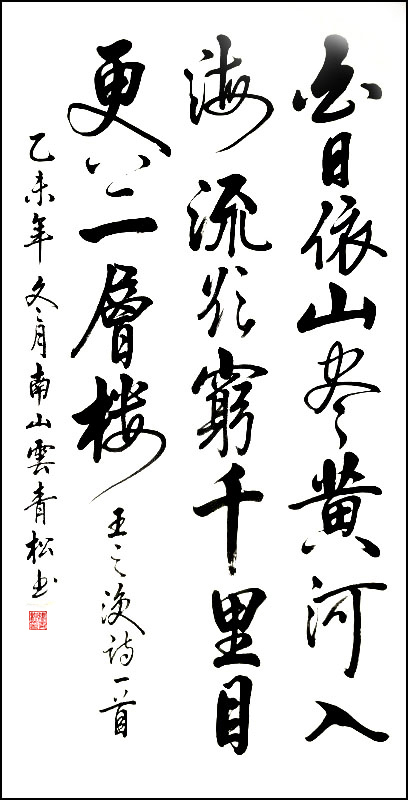 白日依山尽黄河入
海流欲窮千里目
更上一層楼
王之涣诗一首
乙未年冬月南山雲青松书